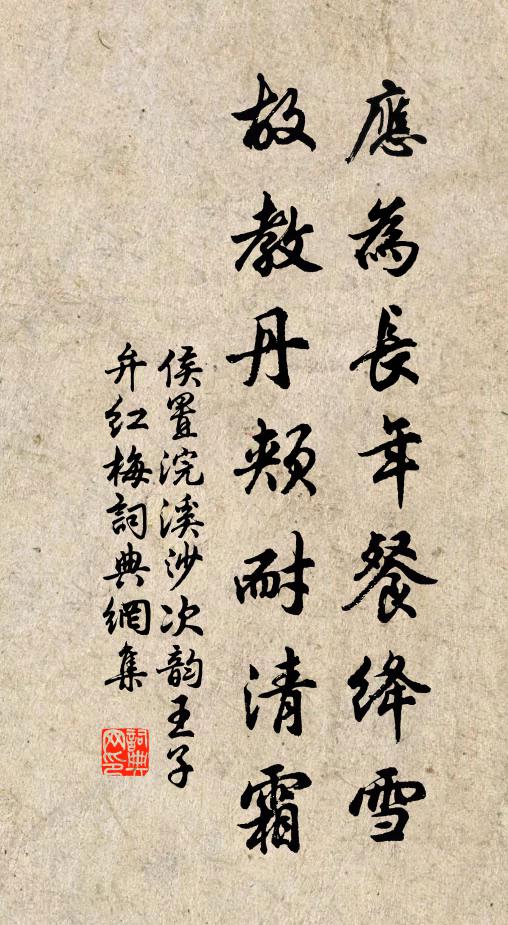 應為長年餐絳雪
故教丹頰耐清霜
侯置浣溪沙次韵王子
弁红梅詞典網集
詞典网印